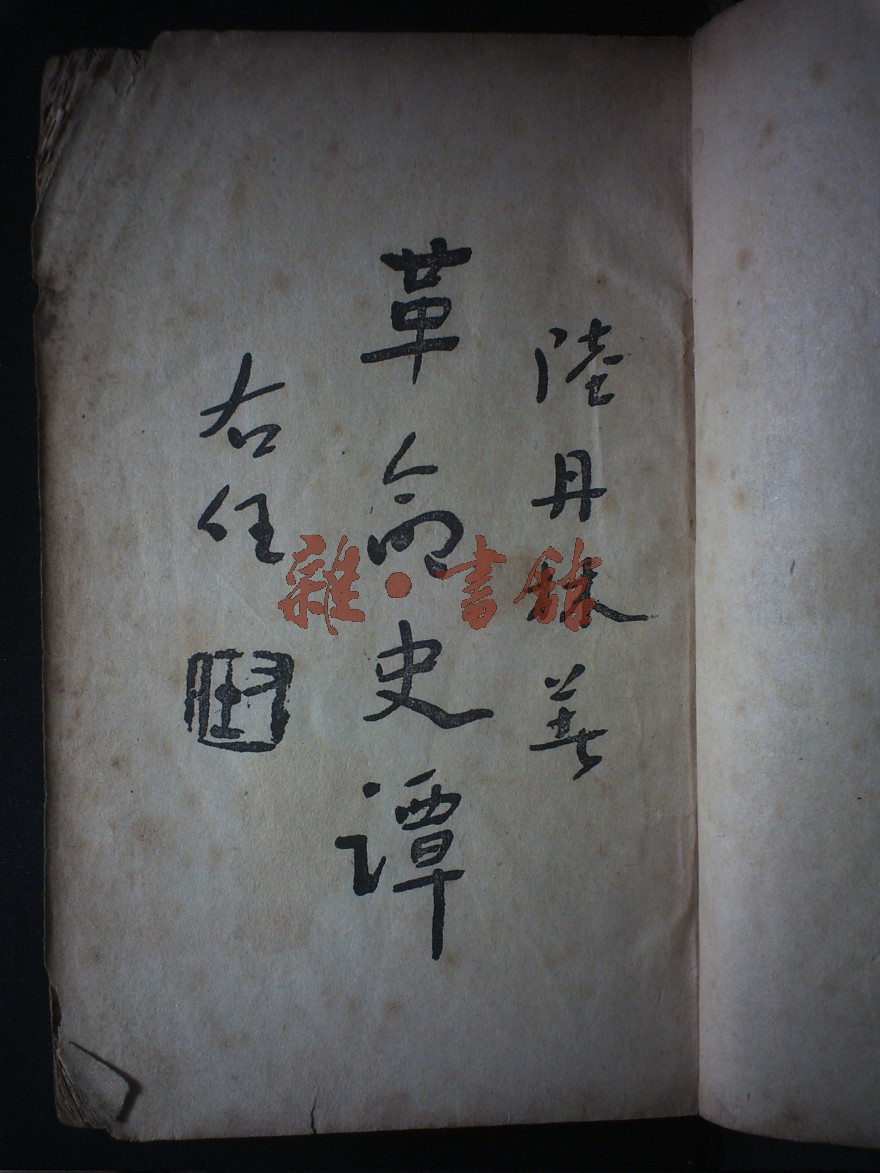 陸丹林著
革命史譚
右任
右任
雜·書館